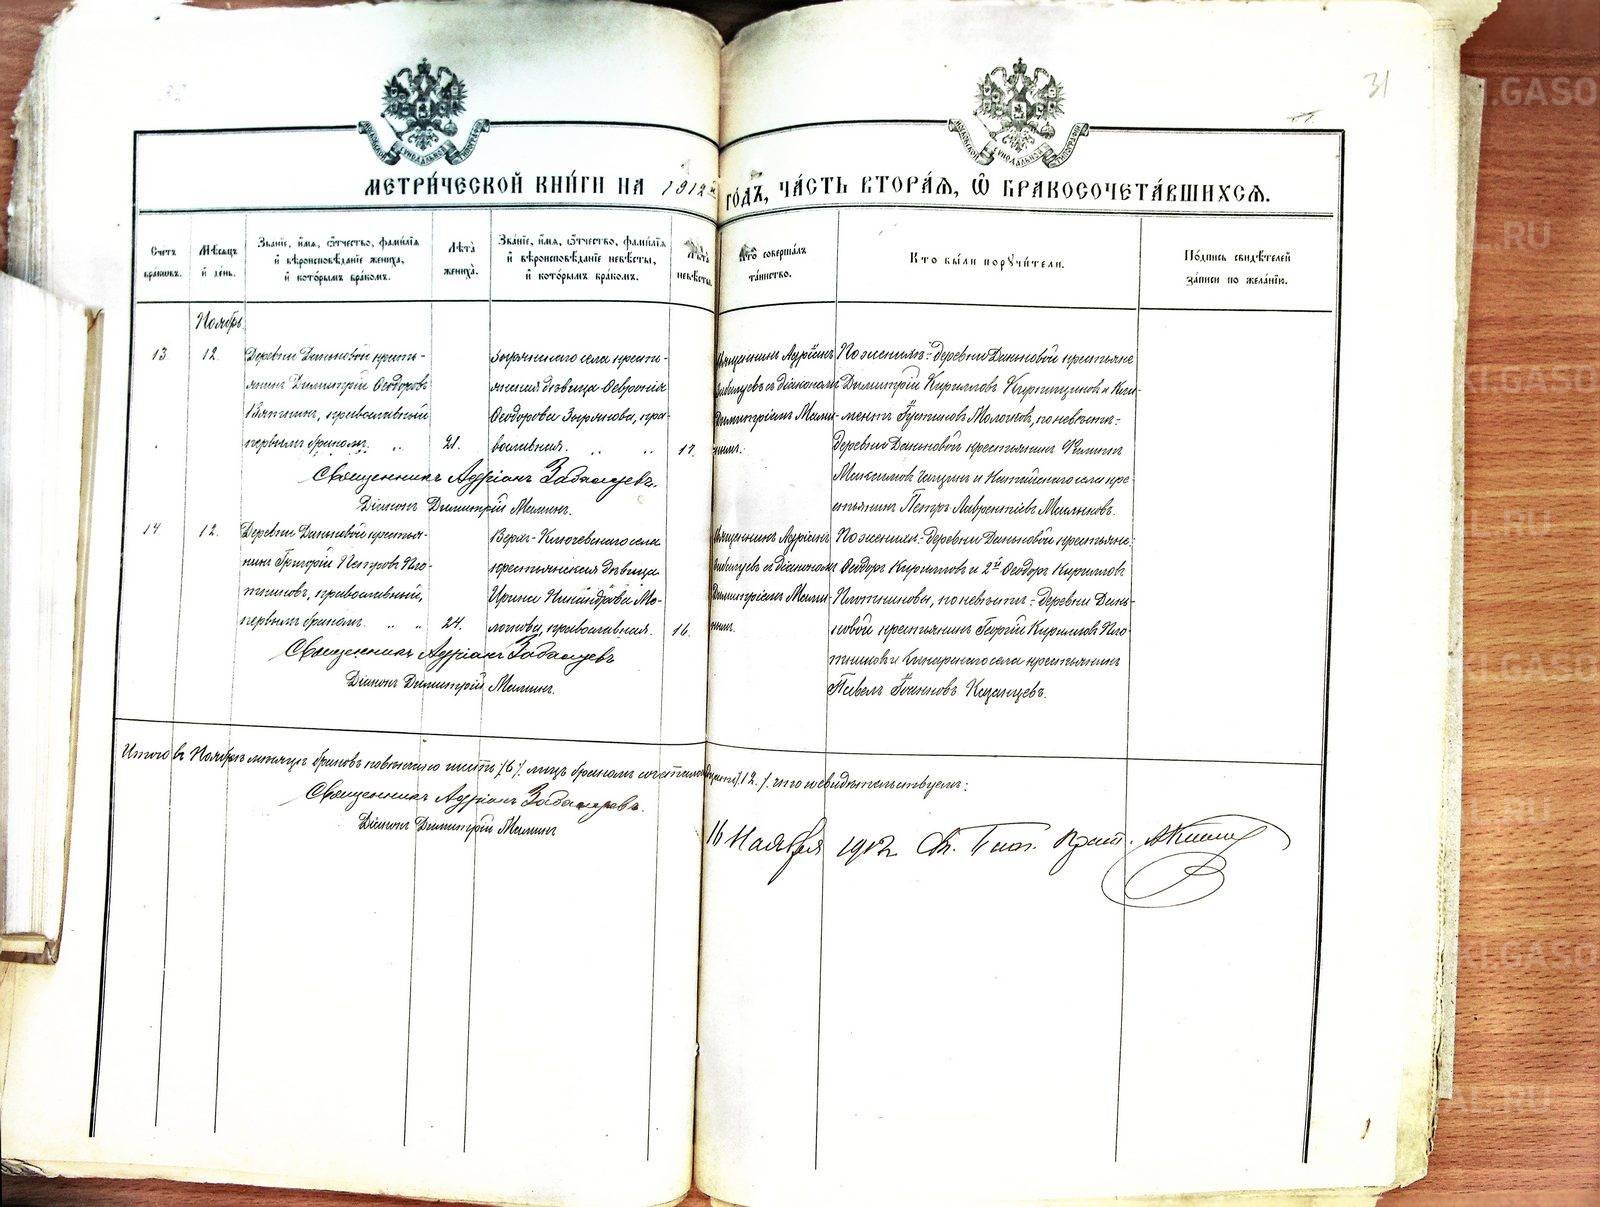 31
МОСКОВСКОЙ СѴНОДАЛЬНОЙ ТИПОГРАФІИ
МОСКОВСКОЙ СѴНОДАЛЬНОЙ ТИПОГРАФІИ
МЕТРИ́ЧЕСКОЙ КНИ́ГИ НА 1912 ГО́ДЪ, ЧА́СТЬ ВТОРА́Я, Ѡ҆ БРАКОСОЧЕТА́ВШИХСЯ.
Счетъ бра́ковъ.
Мѣ́сяцъ и҆ де́нь.
Зва́ніе, и҆́мя, ѻ҆́тчество, фами́лія и҆ вѣроисповѣ́даніе жениха̀, и҆ кото́рымъ бра́комъ.
Лѣ́та жениха̀.
Зва́ніе, и҆́мя, ѻ҆́тчество, фами́лія и҆ вѣроисповѣ́даніе невѣ́сты, и҆ кото́рымъ бра́комъ.
Лѣ́та невѣ́сты.
Кто̀ соверша́лъ та́инство.
Кто̀ бы́ли порꙋчи́тели.
По́дпись свидѣ́телей за́писи по жела́нію.
Ноябрь
13
12.
Деревни Даньковой кресть-
янинъ Димитрій Ѳеодоровъ
Вяткинъ, православный
первымъ бракомъ. " 21.
Зырянскаго села кресть-
янская дѣвица Ѳевронія
Ѳеодорова Зырянова, пра-
вославная. " " 17.
Священникъ Адріанъ
Забалуевъ съ діакономъ
Димитріемъ Мами-
нымъ.
По женихѣ:- деревни Даньковой крестьяне
Димитрій Кирилловъ и Кли-
ментъ Молочковъ, по невѣстѣ:-
Деревни Даньковой крестьянинъ Филиппъ
Максимовъ и села кре-
стьянинъ Петръ Лаврентіевъ Мыльниковъ.
Священникъ Адріанъ Забалуевъ.
Діаконъ Димитрій Маминъ.
14
12.
Деревни Даньковой крестья-
нинъ Григорій Петровъ Пло-
тниковъ, православный,
первымъ бракомъ. " " 24.
Верх-Ключевскаго села
крестьянская дѣвица
Ирина Никандрова Мо-
локова, православная. 16.
Священникъ Адріанъ
Забалуевъ съ діакономъ
Димитріемъ Мами-
нымъ.
По женихѣ:- Деревни Даньковой крестьяне:
Ѳеодоръ Кирилловъ и 2й Ѳеодоръ Кирилловъ
Плотниковы, по невѣстѣ:- Деревни Дань-
ковой крестьянинъ Георгій Кирилловъ Пло-
тниковъ и села крестьянинъ
Павелъ Іоанновъ Казанцевъ.
Священникъ Адріанъ Забалуевъ
Діаконъ Димитрій Маминъ.
Итого въ Ноябрѣ мѣсяцѣ браковъ повѣнчано шесть /6/. лицъ бракомъ сочеталось /12./. что и свидѣтельствуемъ:
Священникъ Адріанъ Забалуевъ.
Діаконъ Димитрій Маминъ
16 Ноября 1912